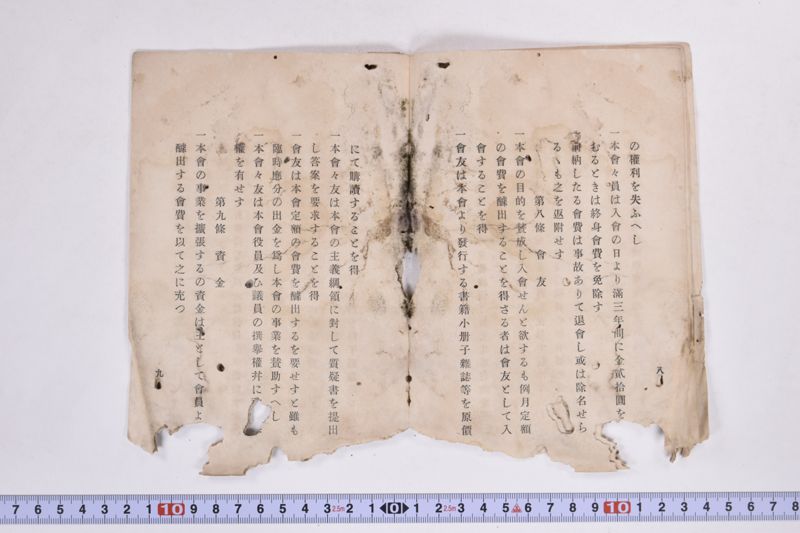 の權利を失ふへし
一本會々員は入會の日より滿三年間に金貳拾圓を
むるときは終身會費を免除す
納したる會費は事故ありて退會し或は除名せら
るゝも之を返附せす
第八條 會友
一本會の目的を賛成し入會せんと欲するも例月定額
の會費を醵出することを得さる者は會友として入
會することを得
一會友は本會より發行する書籍小册子雜誌等を原價
八
にて購讀することを得
一本會々友は本會の主義綱領に對して質疑書を提出
し答案を要求することを得
一會友は本會定額の會費を醵出するを要せすと雖も
臨時應分の出金を爲し本會の事業を賛助すへし
一本會々友は本會役員及ひ議員の撰擧權幷に
權を有せす
第九條 資金
一本會の事業を擴張するの資金は主として會員よ
醵出する會費を以て之に充つ
九
7 6 5 4 3 2 1 10 9 8 7 6 5 4 3 2.5m 2 1 0 1 2 2.5m 3 4 5 6 7 8 9 10 1 2 3 4 5 6 7 8